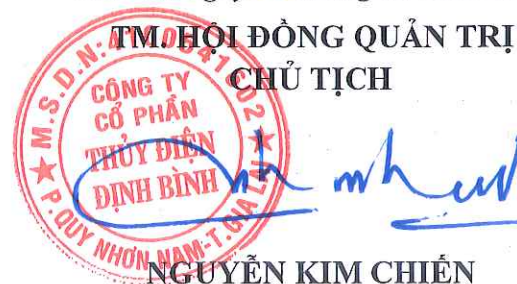 TM. HỘI ĐỒNG QUẢN TRỊ
CHỦ TỊCH
CÔNG TY
CỔ PHẦN
THỦY ĐIỆN
ĐỊNH BÌNH
P. QUY NHƠN NAM-T. GIA LAI
NGUYỄN KIM CHIẾN